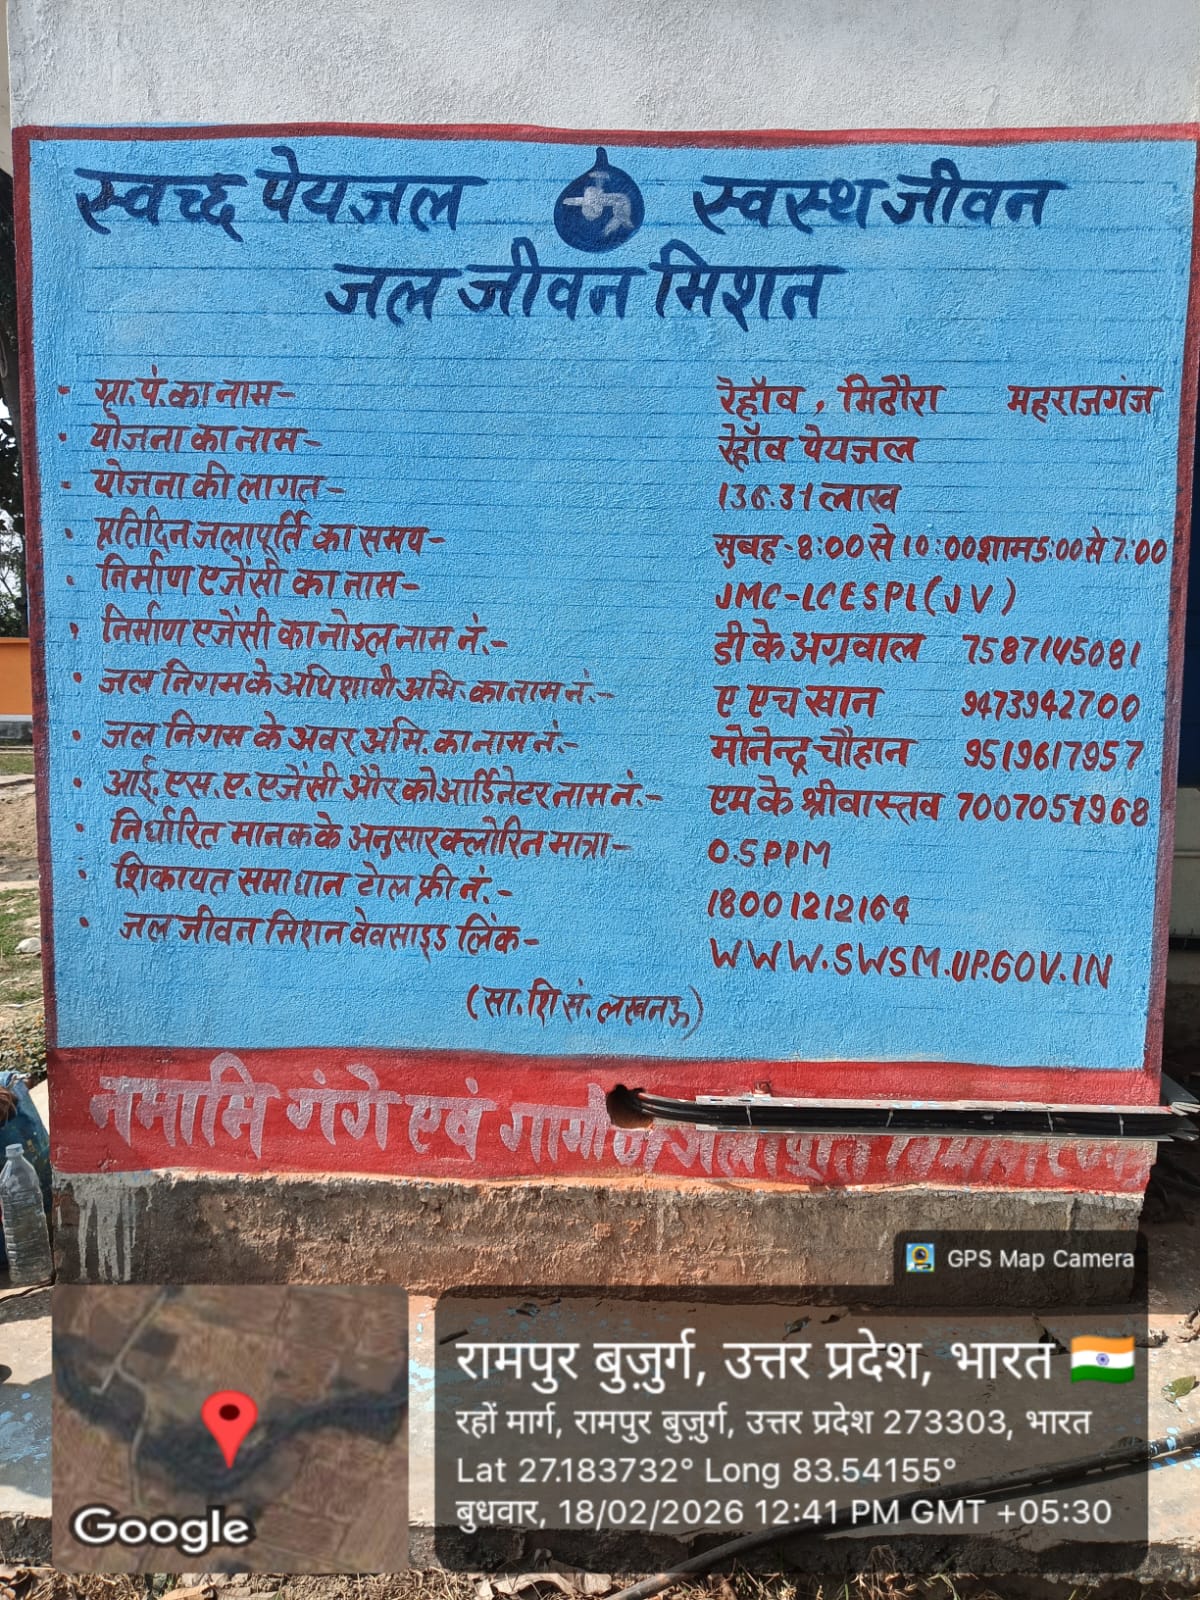 स्वच्छ पेयजल स्वस्थ जीवन
जल जीवन मिशन
• ग्रा.पं. का नाम- रेहॉव, मिठौरा महराजगंज
• योजना का नाम- रेहॉव पेयजल
• योजना की लागत- 136.31 लाख
• प्रतिदिन जलापूर्ति का समय- सुबह-8:00 से 10:00 शाम 5:00 से 7:00
• निर्माण एजेंसी का नाम- JMC-LCESPL(JV)
• निर्माण एजेंसी का नोडल नाम नं.- डी के अग्रवाल 7587145081
• जल निगम के अधिशाषी अभि. का नाम नं.- ए एच खान 9473942700
• जल निगम के अवर अभि. का नाम नं.- मोनेन्द्र चौहान 9519617957
• आई.एस.ए. एजेंसी और कोआर्डिनेटर नाम नं.- एम के श्रीवास्तव 7007051968
• निर्धारित मानक के अनुसार क्लोरिन मात्रा- 0.5 PPM
• शिकायत समाधान टोल फ्री नं.- 18001212164
• जल जीवन मिशन वेवसाइड लिंक- WWW.SWSM.UP.GOV.IN
(सा.शि सं. लखनऊ)
नमामि गंगे एवं
GPS Map Camera
रामपुर बुज़ुर्ग, उत्तर प्रदेश, भारत
रहों मार्ग, रामपुर बुज़ुर्ग, उत्तर प्रदेश 273303, भारत
Lat 27.183732° Long 83.54155°
बुधवार, 18/02/2026 12:41 PM GMT +05:30
Google